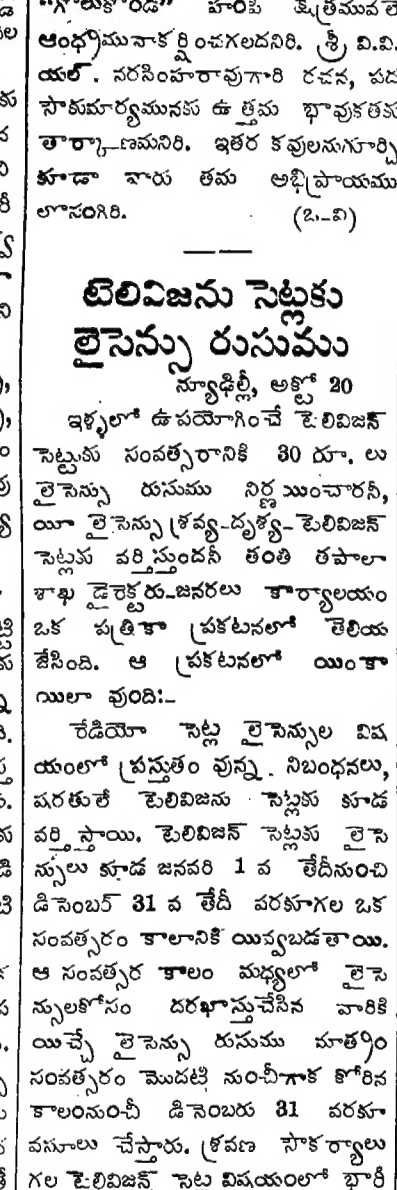 "గోలుకొండ" హంపి క్షేత్రమువలె
ఆంధ్రామునాకర్షించగలదనిరి. శ్రీ వి.వి.
యల్. నరసింహారావుగారి రచన, పద
సౌకుమార్యమునకు ఉత్తమ భావుకతకు
తార్కాణమనిరి. ఇతర కవులనుగూర్చి
కూడా వారు తమ అభిప్రాయము
లొసంగిరి. (ఒ-వి)
టెలివిజను సెట్లకు
లైసెన్సు రుసుము
న్యూఢిల్లీ, అక్టో 20
ఇళ్ళలో ఉపయోగించే టెలివిజన్
సెట్టుకు సంవత్సరానికి 30 రూ. లు
లైసెన్సు రుసుము నిర్ణయించారనీ,
యీ లైసెన్సు శ్రవ్య-దృశ్య-టెలివిజన్
సెట్లకు వర్తిస్తుందనీ తంతి తపాలా
శాఖ డైరెక్టరు-జనరలు కార్యాలయం
ఒక పత్రికా ప్రకటనలో తెలియ
జేసింది. ఆ ప్రకటనలో యింకా
యిలా వుంది:-
రేడియో సెట్ల లైసెన్సుల విష
యంలో ప్రస్తుతం వున్న నిబంధనలు,
షరతులే టెలివిజను సెట్లకు కూడ
వర్తిస్తాయి. టెలివిజన్ సెట్లకు లైసె
న్సులు కూడ జనవరి 1 వ తేదీనుంచి
డిసెంబర్ 31 వ తేదీ వరకూగల ఒక
సంవత్సరం కాలానికి యివ్వబడతాయి.
ఆ సంవత్సర కాలం మధ్యలో లైసె
న్సులకోసం దరఖాస్తుచేసిన వారికి
యిచ్చే లైసెన్సు రుసుము మాత్రం
సంవత్సరం మొదటి నుంచీగాక కోరిన
కాలంనుంచీ డిసెంబరు 31 వరకూ
వసూలు చేస్తారు. శ్రవణ సౌకర్యాలు
గల టెలివిజన్ సెట్ల విషయంలో భారీ